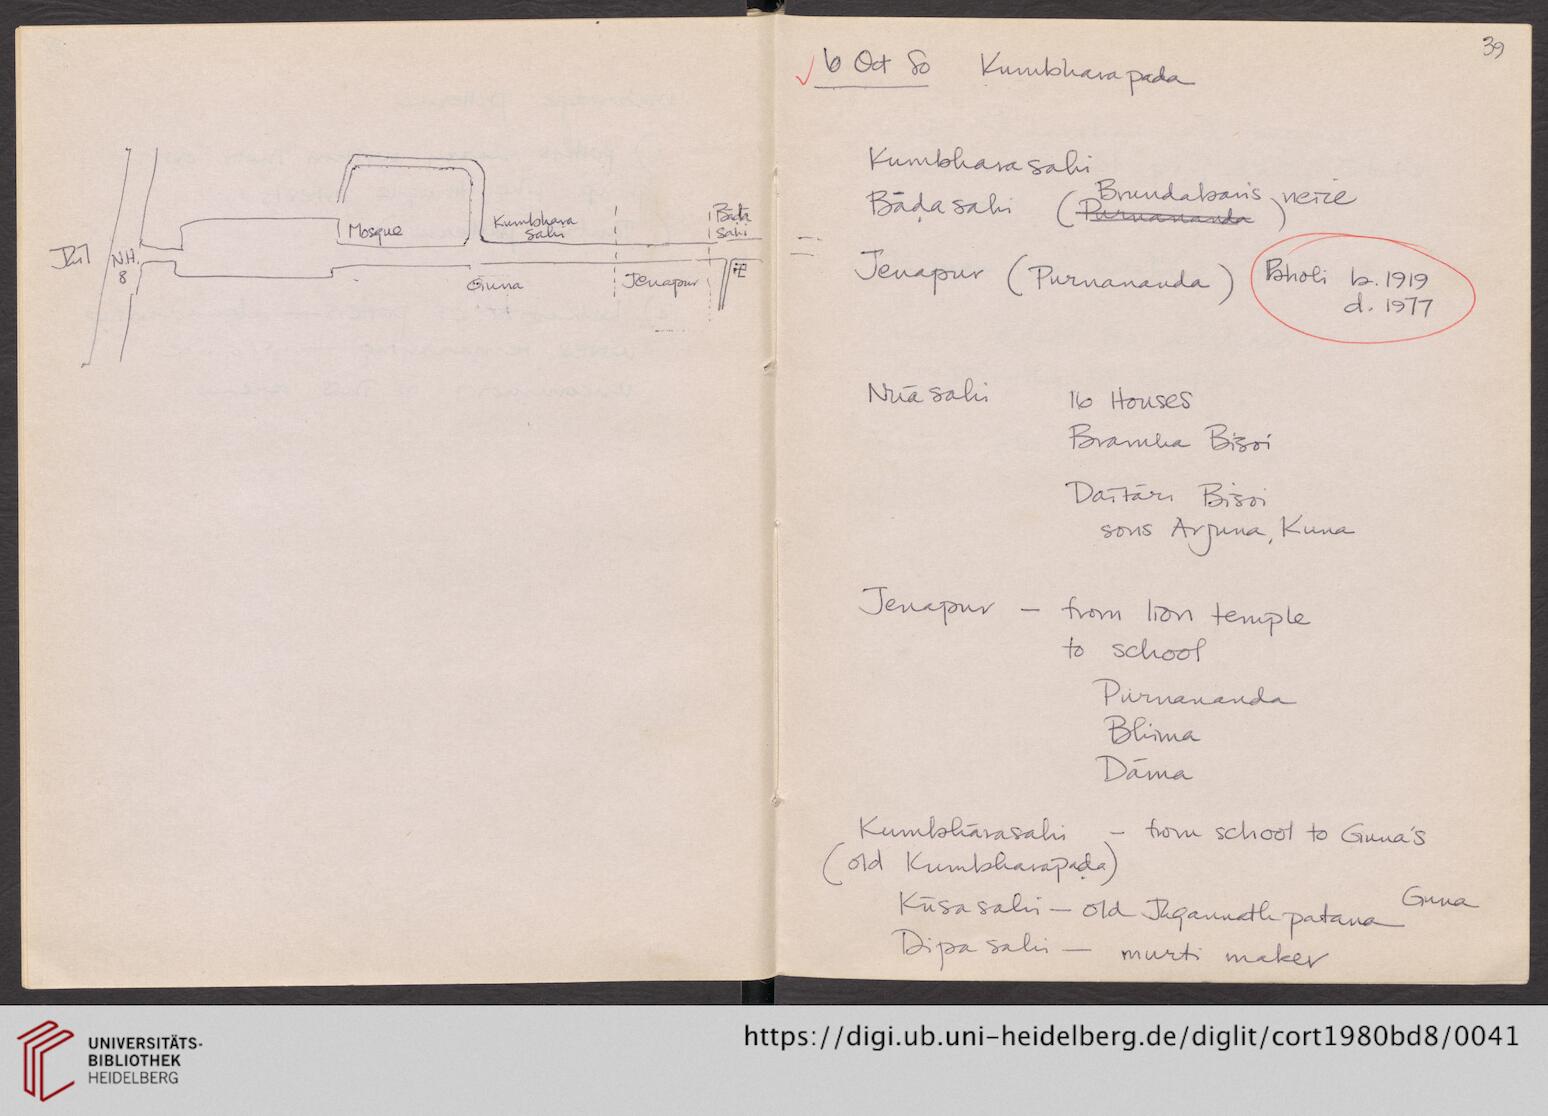 Mosque
Kumbhara
Sahi
Bāḍa
Sahi
N.H.
8
Guna
Jenapur
39
6 Oct 80 Kumbharapada
Kumbharasahi
Bāḍasahi (Brundaban's neice)
Purnananda
Jenapur (Purnananda)
Bholi b. 1919
d. 1977
Nuāsahi 16 Houses
Bramha Bisoi
Daitāri Bisoi
sons Arjuna, Kuna
Jenapur – from lion temple
to school
Purnananda
Bhima
Dāma
Kumbhārasahi – from school to Guna's
(old Kumbharapaḍa)
Kusasahi – old Jhgannath patana Guna
Dipa sahi – murti maker
UNIVERSITÄTS-
BIBLIOTHEK
HEIDELBERG
https://digi.ub.uni-heidelberg.de/diglit/cort1980bd8/0041